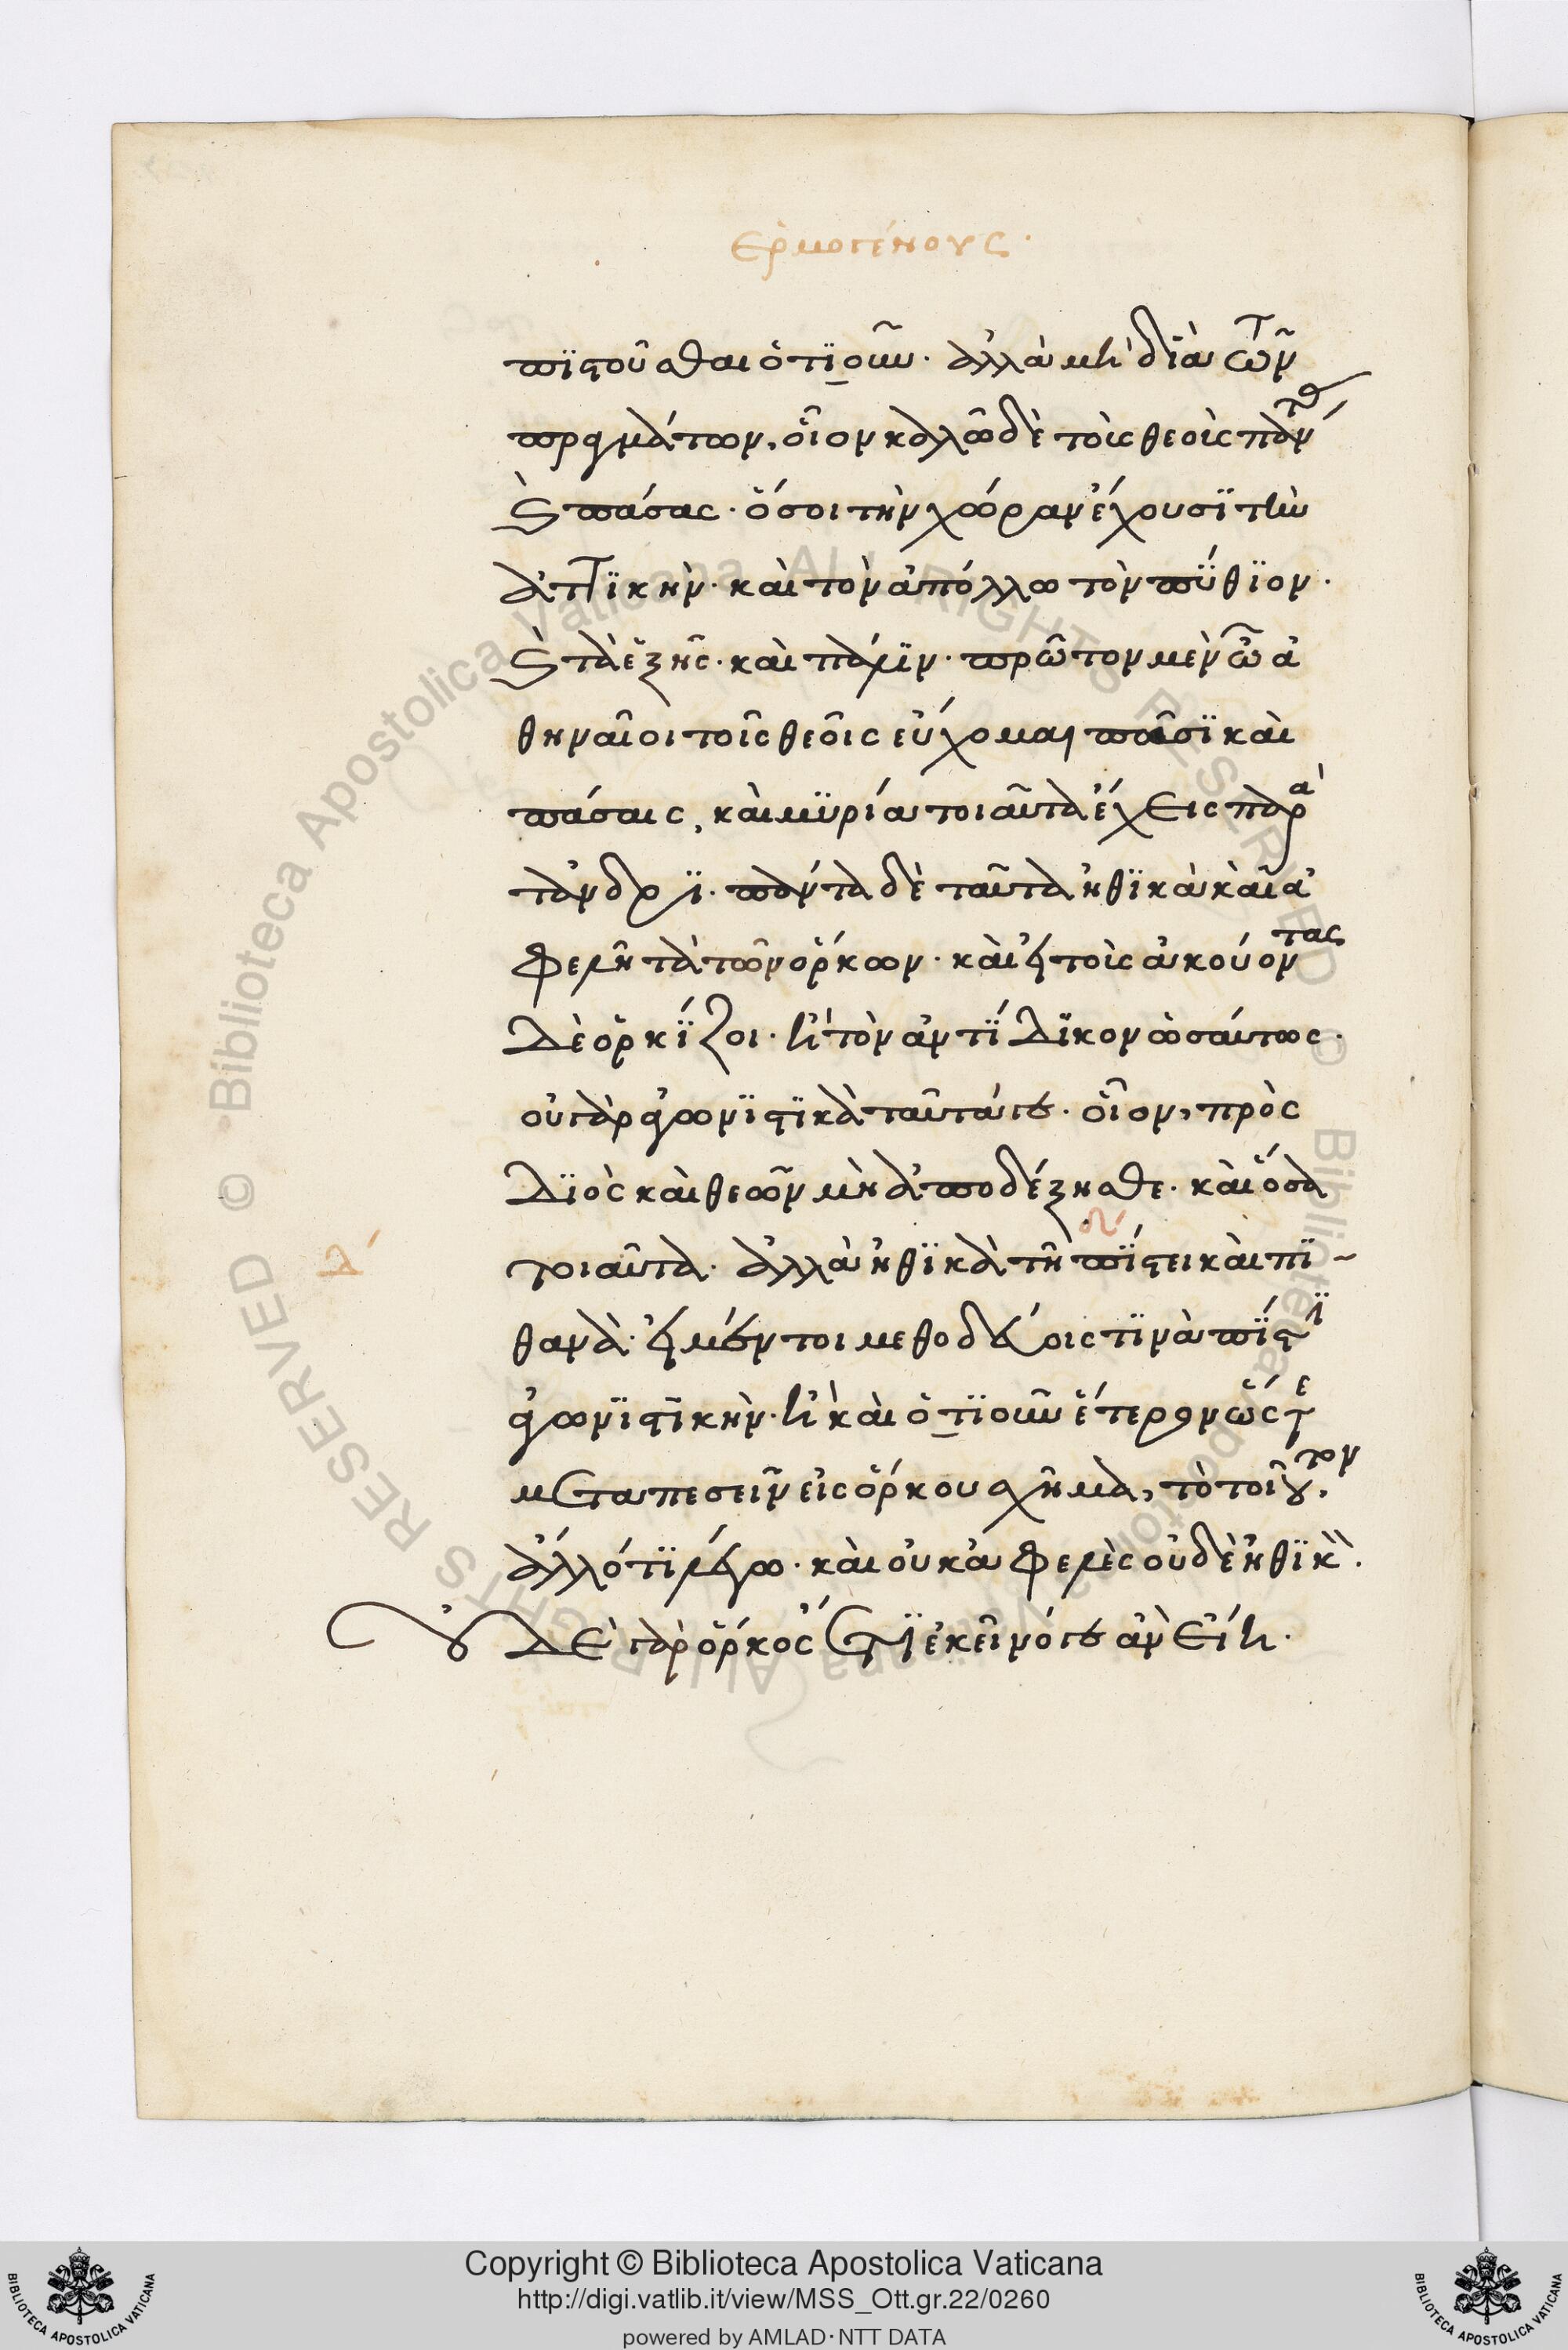 Ἑρμογένους.
πιστοῦσθαι ὁτιοῦν. ἀλλὰ μὴ διὰ τῶν
πραγμάτων, οἷον καλῶ δὲ τοὺς θεοὺς πάντας
καὶ πάσας. ὅσοι τὴν χώραν ἔχουσι τὴν
ἀττικὴν. καὶ τὸν ἀπόλλω τὸν πύθιον.
καὶ τὰ ἑξῆς. καὶ πάλιν. πρῶτον μὲν ὦ ἀ
θηναῖοι τοῖς θεοῖς εὔχομαι πᾶσι καὶ
πάσαις, καὶ μυρία τοιαῦτα ἔχεις παρὰ
τἀνδρί. πάντα δὲ ταῦτα ἠθικὰ καὶ ἀ
φελῆ τὰ τῶν ὅρκων. κἂν τοὺς ἀκούοντας
δὲ ὁρκίζοι. ἢ τὸν ἀντίδικον ὡσαύτως.
οὐ γὰρ ἀγωνιστικὰ ταῦτά γε. οἷον, πρὸς
Διὸς καὶ θεῶν μὴ ἀποδέξησθε. καὶ ὅσα
τοιαῦτα. ἀλλὰ ἠθικὰ τῇ πίστει καὶ πι-
θανὰ. ἂν μέντοι μεθοδεύοις τινὰ πίστιν
ἀγωνιστικὴν. ἢ καὶ ὁτιοῦν ἕτερον ὥστε
μεταπεσεῖν εἰς ὅρκου σχῆμα, τὸ τοιοῦτον
ἄλλό τι λέγω. καὶ οὐκ ἀφελὲς οὐδὲ ἠθικὸν.
οὐδὲ γὰρ ὅρκος ἔτι ἐκεῖνό γε ἂν εἴη.
Δʹ